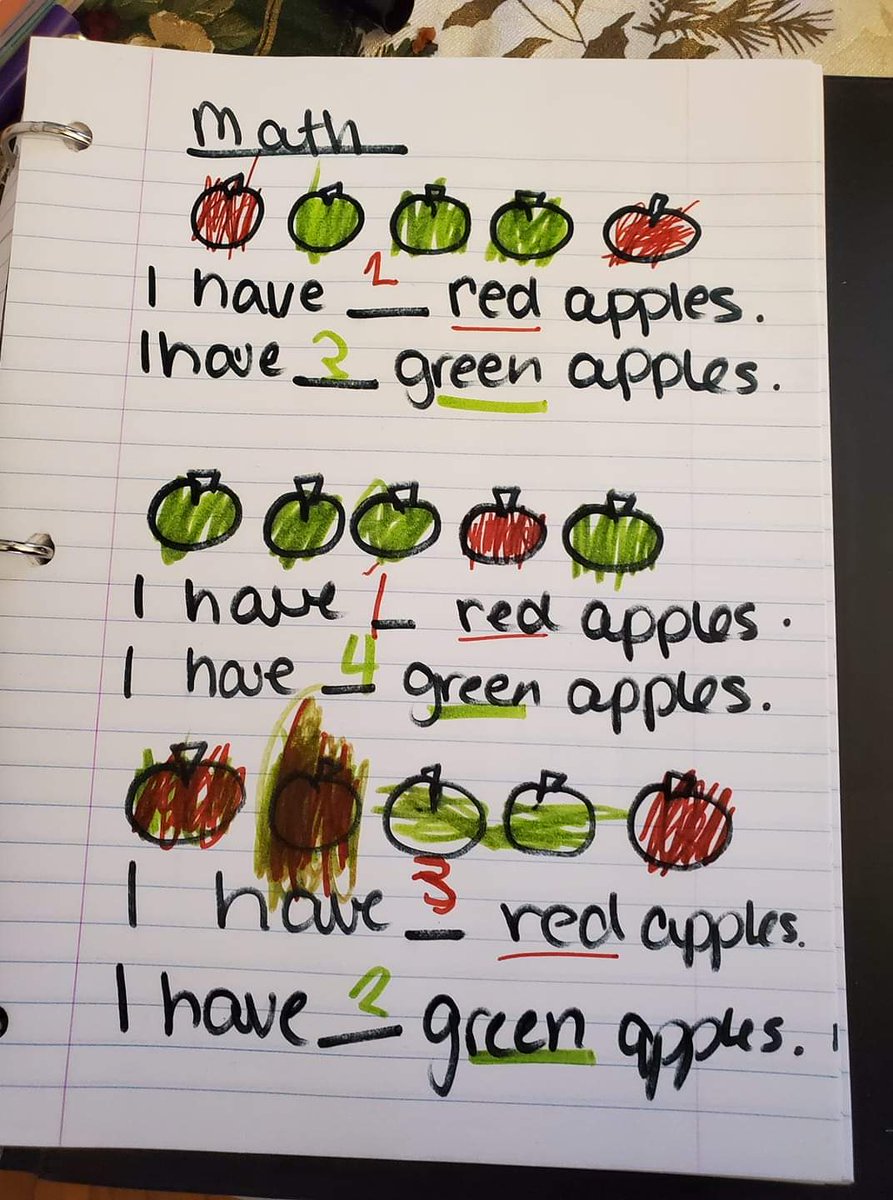 Math
I have 2 red apples.
I have 3 green apples.
I have 1 red apples.
I have 4 green apples.
I have 3 red apples.
I have 2 green apples.